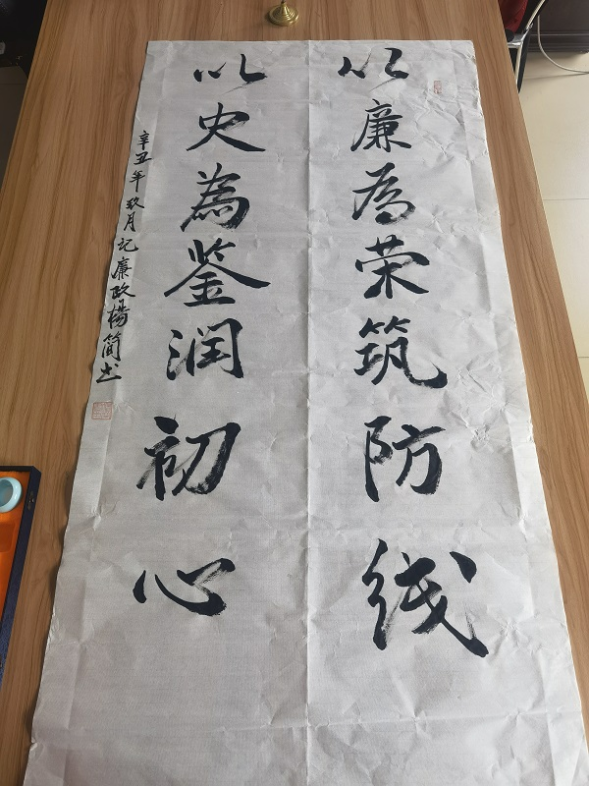 以廉为荣筑防线
以史為鉴润初心
辛丑年玖月记廉政楊简书